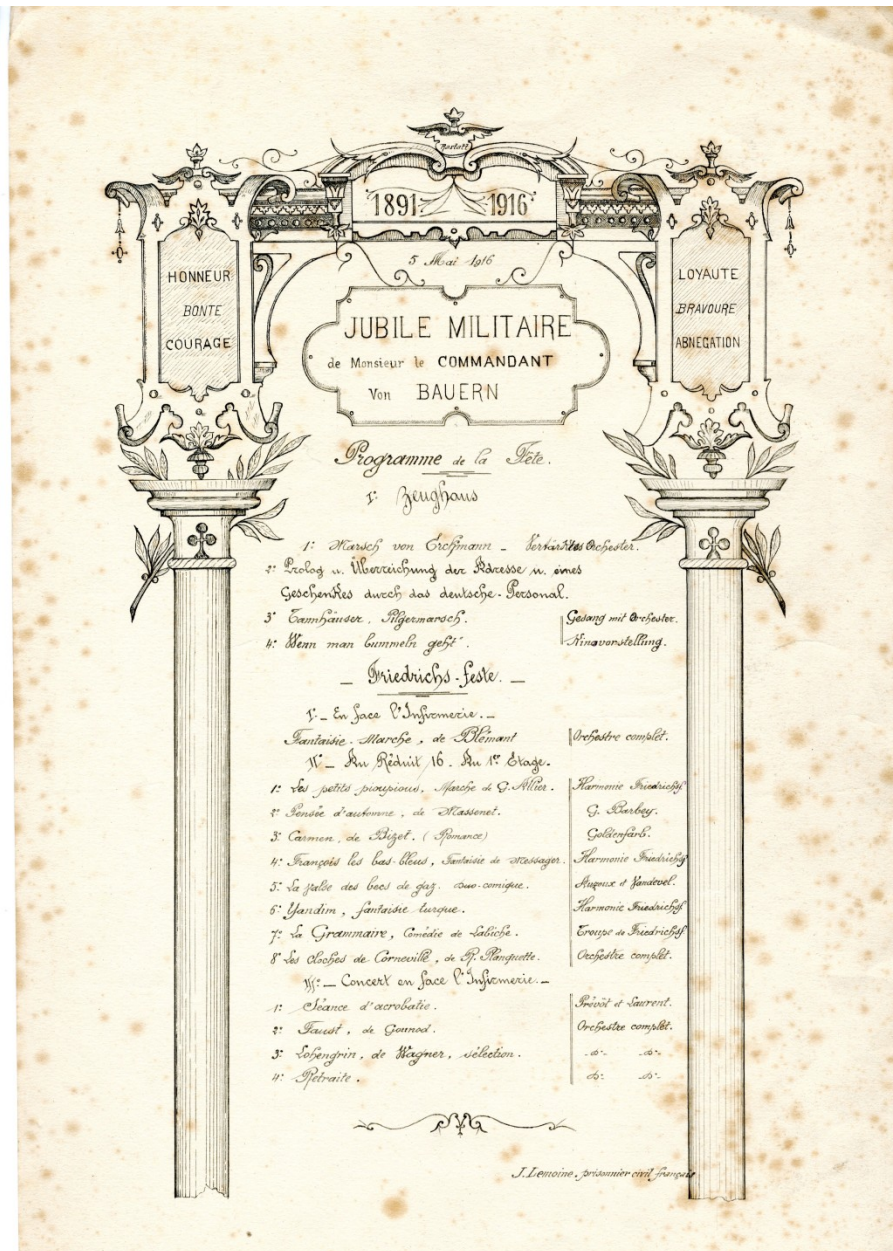 Rastatt
1891 1916
5 Mai 1916
HONNEUR
BONTE
COURAGE
LOYAUTE
BRAVOURE
ABNEGATION
JUBILE MILITAIRE
de Monsieur le COMMANDANT
Von BAUERN
Programme de la Fête.
I: Zeughaus
1: Marsch von Erchmann _ Verstärktes Orchester.
2: Prolog u. Überreichung der Adresse u. eines
Geschenkes durch das deutsche-Personal.
3: Tannhäuser, Pilgermarsch. Gesang mit Orchester.
4: Wenn man bummeln geht". Kinovorstellung.
_ Friedrichs-feste. _
I: _ En face l'Infirmerie. _
Fantaisie-Marche, de Blémant Orchestre complet.
II: _ Au Réduit 16. Au 1er Etage.
1: Les petits pioupious, Marche de G. Allier. Harmonie Friedrichsf
2: Pensée d'automne, de Massenet. G. Barbey.
3: Carmen, de Bizet. (Romance) Goldenfarb.
4: François les bas-bleus, Fantaisie de Messager. Harmonie Friedrichsf
5: La valse des becs de gaz. Duo-comique. et Vandevel.
6: Yandim, fantaisie turque. Harmonie Friedrichsf
7: La Grammaire, Comédie de Labiche. Troupe de Friedrichsf
8: Les cloches de Corneville, de R. Planquette. Orchestre complet.
III: _ Concert en face l'Infirmerie. _
1: Séance d'acrobatie. Prévôt et Laurent.
2: Faust, de Gounod. Orchestre complet.
3: Lohengrin, de Wagner, sélection. -do:- -do:-
4: Retraite. do:- -do:-
J. Lemoine. prisonnier civil français